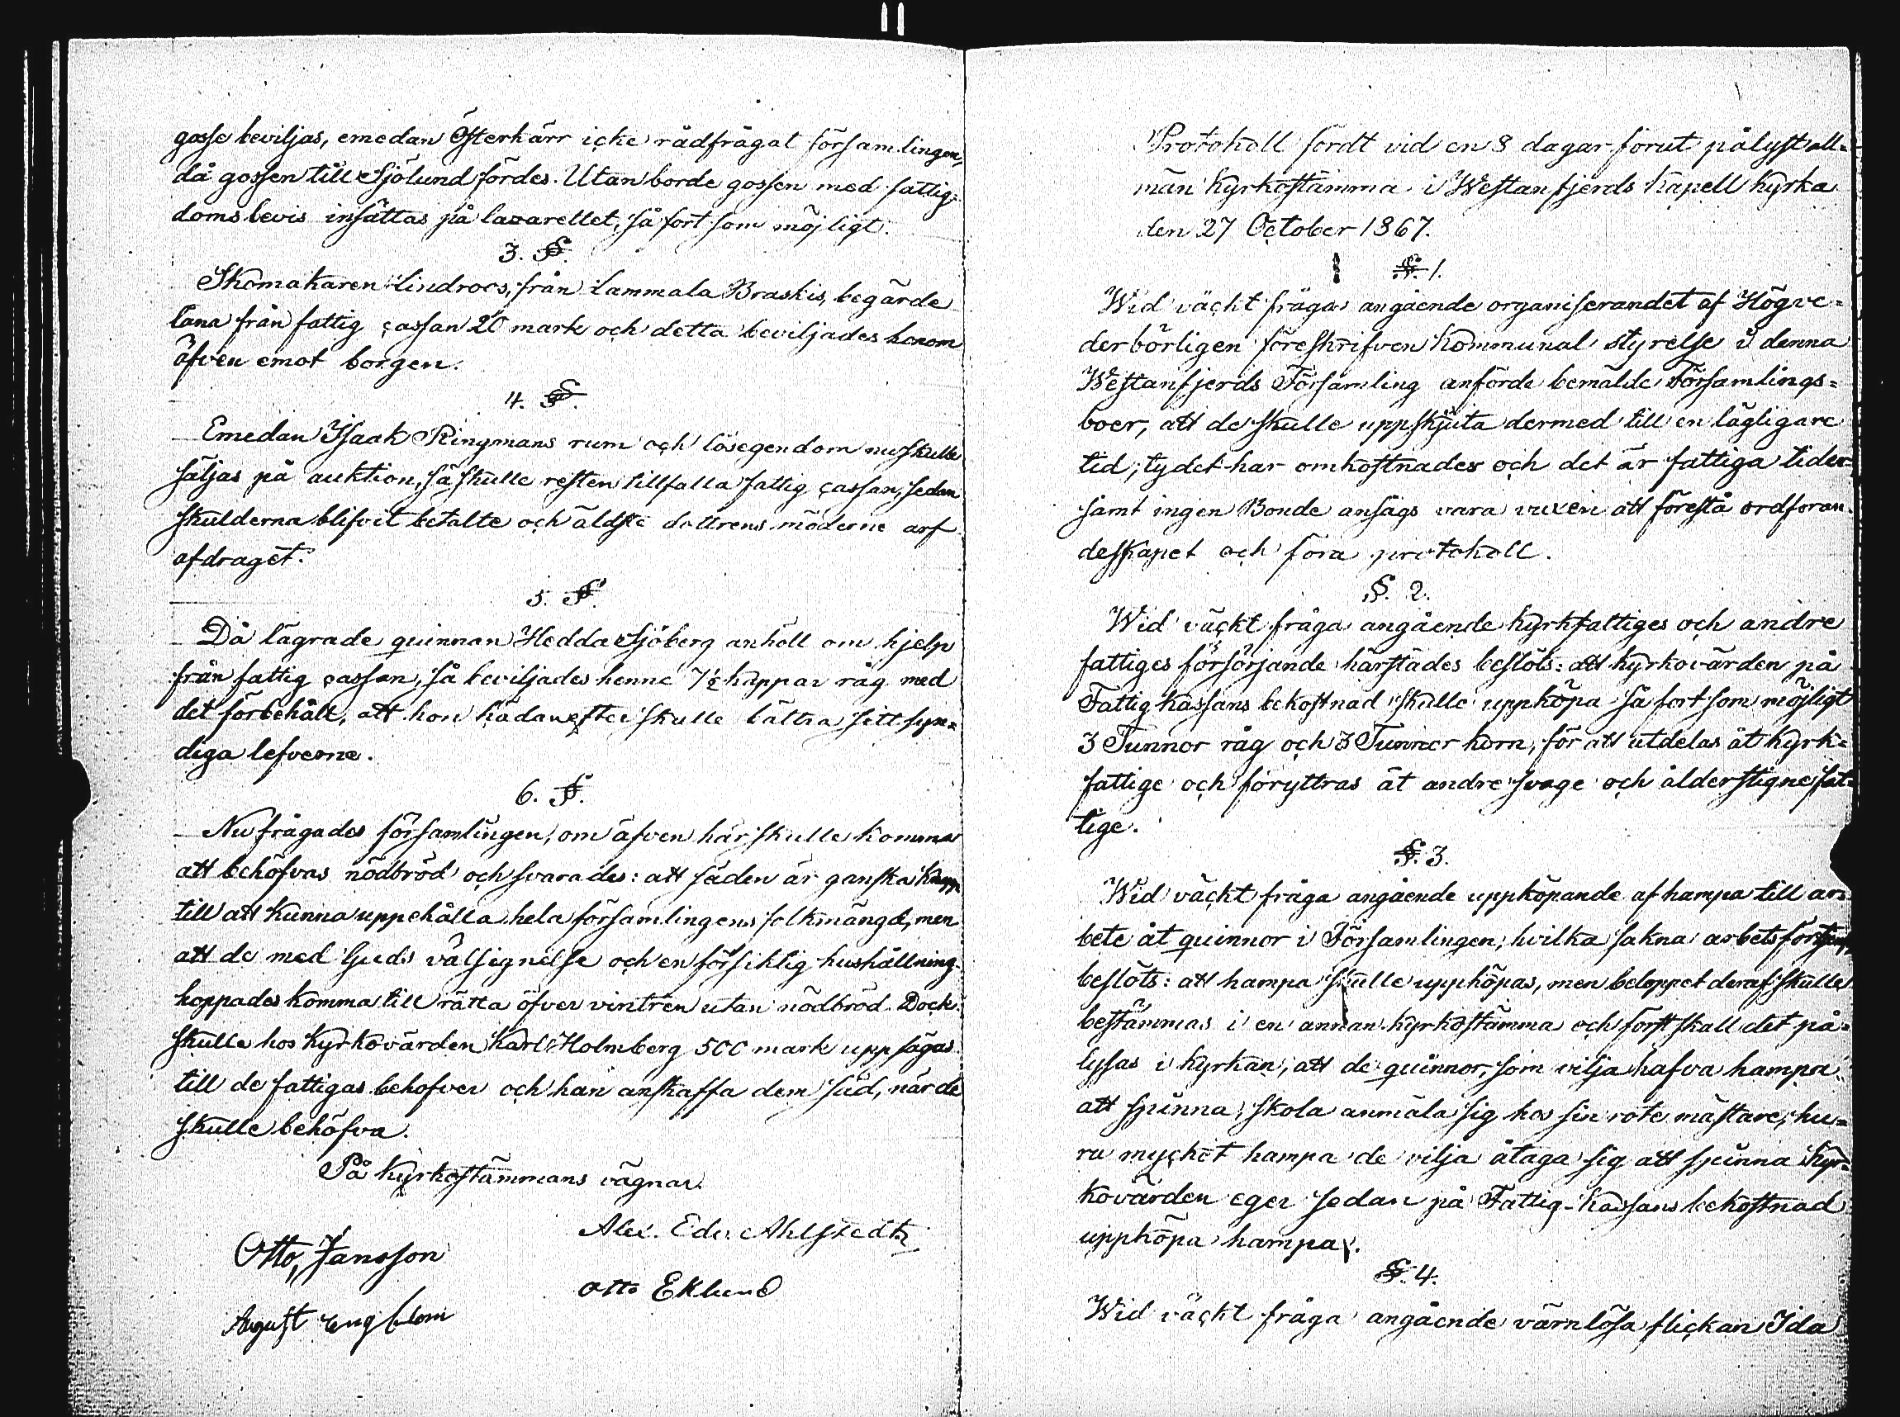 gosse beviljas, emedan Österkärr icke rådfrågat församlingen,
då gossen till Sjölund fördes. Utan borde gossen med fattig-
domsbevis insättas på lazarettet, så fort som möjligt.
3. §.
Skomakaren Lindroos, från Lammala Braskis, begärde
låna från fattig cassan 20 mark och detta beviljades honom
äfven emot borgen.
4. §.
Emedan Isaak Ringmans rum och lösegendom nu skulle
säljas på auktion, så skulle resten tillfalla fattig cassan, sedan
skulderna blifvit betalte och äldste dottrens möderne arf
afdraget.
5. §.
Då lägrade quinnan Hedda Sjöberg anhöll om hjelp
från fattig cassan, så beviljades henne 7½ kappar råg med
det förbehåll, att hon hädanefter skulle bättra sitt syn=
diga lefverne.
6. §.
Nu frågades församlingen, om äfven här skulle komma
att behöfvas nödbröd och svarades: att säden är ganska knapp
till att kunna uppehålla hela församlingens folkmängd, men
att de med Guds välsignelse och en försiktig hushållning
hoppades komma till rätta öfver vintren utan nödbröd. Dock
skulle hos Kyrkovärden Karl Holmberg 500 mark uppsägas
till de fattigas behofver och han anskaffa dem säd, när de
skulle behöfva.
På Kyrkostämmans vägnar.
Alex. Edv. Ahlstedt
Otto Jansson
Otto Eklund
August Engblom
Protokoll fördt vid en 8 dagar förut pålyst all=
män Kyrkostämma i Westanfjerds Kapell Kyrka
den 27 October 1867.
§. 1.
Wid väckt fråga angående organiserandet af Högve=
derbörligen föreskrifven Kommunal styrelse i denna
Westanfjerds Församling anförde bemälde Församlings=
boer, att de skulle uppskjuta dermed till en lägligare
tid; ty det har omkostnader och det är fattiga tider
samt ingen Bonde ansågs vara vuxen att förestå ordföran-
deskapet och föra protokoll.
§. 2.
Wid väckt fråga angående kyrkfattiges och andre
fattiges försörjande härstädes beslöts: att Kyrkovärden på
Fattig kassans bekostnad skulle uppköpa så fort som möjligt
3 Tunnor råg och 3 Tunnor korn, för att utdelas åt kyrk=
fattige och föryttras åt andre svage och ålderstigne fat=
tige.
§. 3.
Wid väckt fråga angående uppköpande af hampa till ar=
bete åt quinnor i Församlingen, hvilka sakna arbetsförtjenst
beslöts: att hampa skulle uppköpas, men beloppet deraf skulle
bestämmas i en annan kyrkostämma och först skall det på=
lysas i kyrkan, att de quinnor, som vilja hafva hampa
att spinna, skola anmäla sig hos sin rote mästare, hu=
ru mycket hampa de vilja åtaga sig att spinna. Kyr=
kovärden eger sedan på Fattig-kassans bekostnad
uppköpa hampa.
§. 4.
Wid väckt fråga angående värnlösa flickan Ida